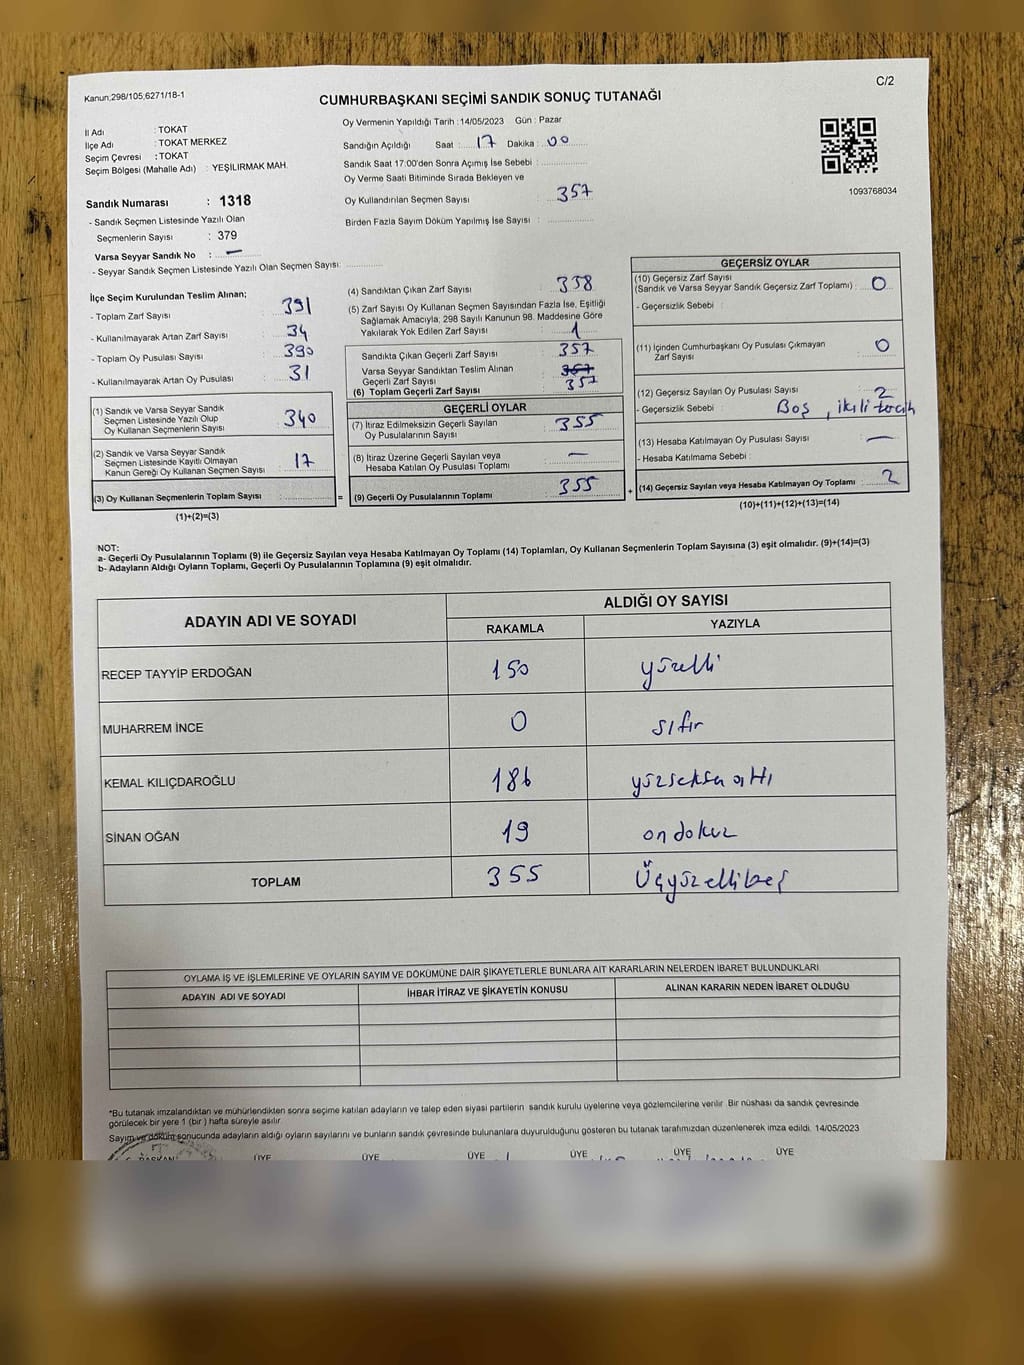 Kanun;298/105;6271/18-1
C/2
CUMHURBAŞKANI SEÇİMİ SANDIK SONUÇ TUTANAĞI
İl Adı : TOKAT
İlçe Adı : TOKAT MERKEZ
Seçim Çevresi : TOKAT
Seçim Bölgesi (Mahalle Adı) : YEŞİLIRMAK MAH.
Sandık Numarası : 1318
- Sandık Seçmen Listesinde Yazılı Olan
Seçmenlerin Sayısı : 379
Varsa Seyyar Sandık No : —
- Seyyar Sandık Seçmen Listesinde Yazılı Olan Seçmen Sayısı:
Oy Vermenin Yapıldığı Tarih : 14/05/2023 Gün : Pazar
Sandığın Açıldığı Saat : 17 Dakika : 00
Sandık Saat 17:00'den Sonra Açımış İse Sebebi :
Oy Verme Saati Bitiminde Sırada Bekleyen ve
Oy Kullandırılan Seçmen Sayısı : 357
Birden Fazla Sayım Döküm Yapılmış İse Sayısı :
1093768034
İlçe Seçim Kurulundan Teslim Alınan;
- Toplam Zarf Sayısı : 391
- Kullanılmayarak Artan Zarf Sayısı : 34
- Toplam Oy Pusulası Sayısı : 390
- Kullanılmayarak Artan Oy Pusulası : 31
(1) Sandık ve Varsa Seyyar Sandık
Seçmen Listesinde Yazılı Olup
Oy Kullanan Seçmenlerin Sayısı : 340
(2) Sandık ve Varsa Seyyar Sandık
Seçmen Listesinde Kayıtlı Olmayan
Kanun Gereği Oy Kullanan Seçmen Sayısı : 17
(3) Oy Kullanan Seçmenlerin Toplam Sayısı :
(1)+(2)=(3)
(4) Sandıktan Çıkan Zarf Sayısı : 358
(5) Zarf Sayısı Oy Kullanan Seçmen Sayısından Fazla İse, Eşitliği
Sağlamak Amacıyla, 298 Sayılı Kanunun 98. Maddesine Göre
Yakılarak Yok Edilen Zarf Sayısı : 1
Sandıkta Çıkan Geçerli Zarf Sayısı : 357
Varsa Seyyar Sandıktan Teslim Alınan
Geçerli Zarf Sayısı
(6) Toplam Geçerli Zarf Sayısı : 357
GEÇERLİ OYLAR
(7) İtiraz Edilmeksizin Geçerli Sayılan
Oy Pusulalarının Sayısı : 355
(8) İtiraz Üzerine Geçerli Sayılan veya
Hesaba Katılan Oy Pusulası Toplamı : —
= (9) Geçerli Oy Pusulalarının Toplamı : 355
GEÇERSİZ OYLAR
(10) Geçersiz Zarf Sayısı
(Sandık ve Varsa Seyyar Sandık Geçersiz Zarf Toplamı) : 0
- Geçersizlik Sebebi :
(11) İçinden Cumhurbaşkanı Oy Pusulası Çıkmayan
Zarf Sayısı : 0
(12) Geçersiz Sayılan Oy Pusulası Sayısı : 2
- Geçersizlik Sebebi : Boş, ikili tercih
(13) Hesaba Katılmayan Oy Pusulası Sayısı : —
- Hesaba Katılmama Sebebi :
+ (14) Geçersiz Sayılan veya Hesaba Katılmayan Oy Toplamı : 2
(10)+(11)+(12)+(13)=(14)
NOT:
a- Geçerli Oy Pusulalarının Toplamı (9) ile Geçersiz Sayılan veya Hesaba Katılmayan Oy Toplamı (14) Toplamları, Oy Kullanan Seçmenlerin Toplam Sayısına (3) eşit olmalıdır. (9)+(14)=(3)
b- Adayların Aldığı Oyların Toplamı, Geçerli Oy Pusulalarının Toplamına (9) eşit olmalıdır.
ADAYIN ADI VE SOYADI ALDIĞI OY SAYISI
RAKAMLA YAZIYLA
RECEP TAYYİP ERDOĞAN 150 yüzelli
MUHARREM İNCE 0 sıfır
KEMAL KILIÇDAROĞLU 186 yüzseksen altı
SİNAN OĞAN 19 ondokuz
TOPLAM 355 Üçyüzellibeş
OYLAMA İŞ VE İŞLEMLERİNE VE OYLARIN SAYIM VE DÖKÜMÜNE DAİR ŞİKAYETLERLE BUNLARA AİT KARARLARIN NELERDEN İBARET BULUNDUKLARI
ADAYIN ADI VE SOYADI İHBAR İTİRAZ VE ŞİKAYETİN KONUSU ALINAN KARARIN NEDEN İBARET OLDUĞU
*Bu tutanak imzalandıktan ve mühürlendikten sonra seçime katılan adayların ve talep eden siyasi partilerin sandık kurulu üyelerine veya gözlemcilerine verilir. Bir nüshası da sandık çevresinde
görülecek bir yere 1 (bir ) hafta süreyle asılır.
Sayım ve döküm sonucunda adayların aldığı oyların sayılarını ve bunların sandık çevresinde bulunanlara duyurulduğunu gösteren bu tutanak tarafımızdan düzenlenerek imza edildi. 14/05/2023
BAŞKAN ÜYE ÜYE ÜYE ÜYE ÜYE ÜYE